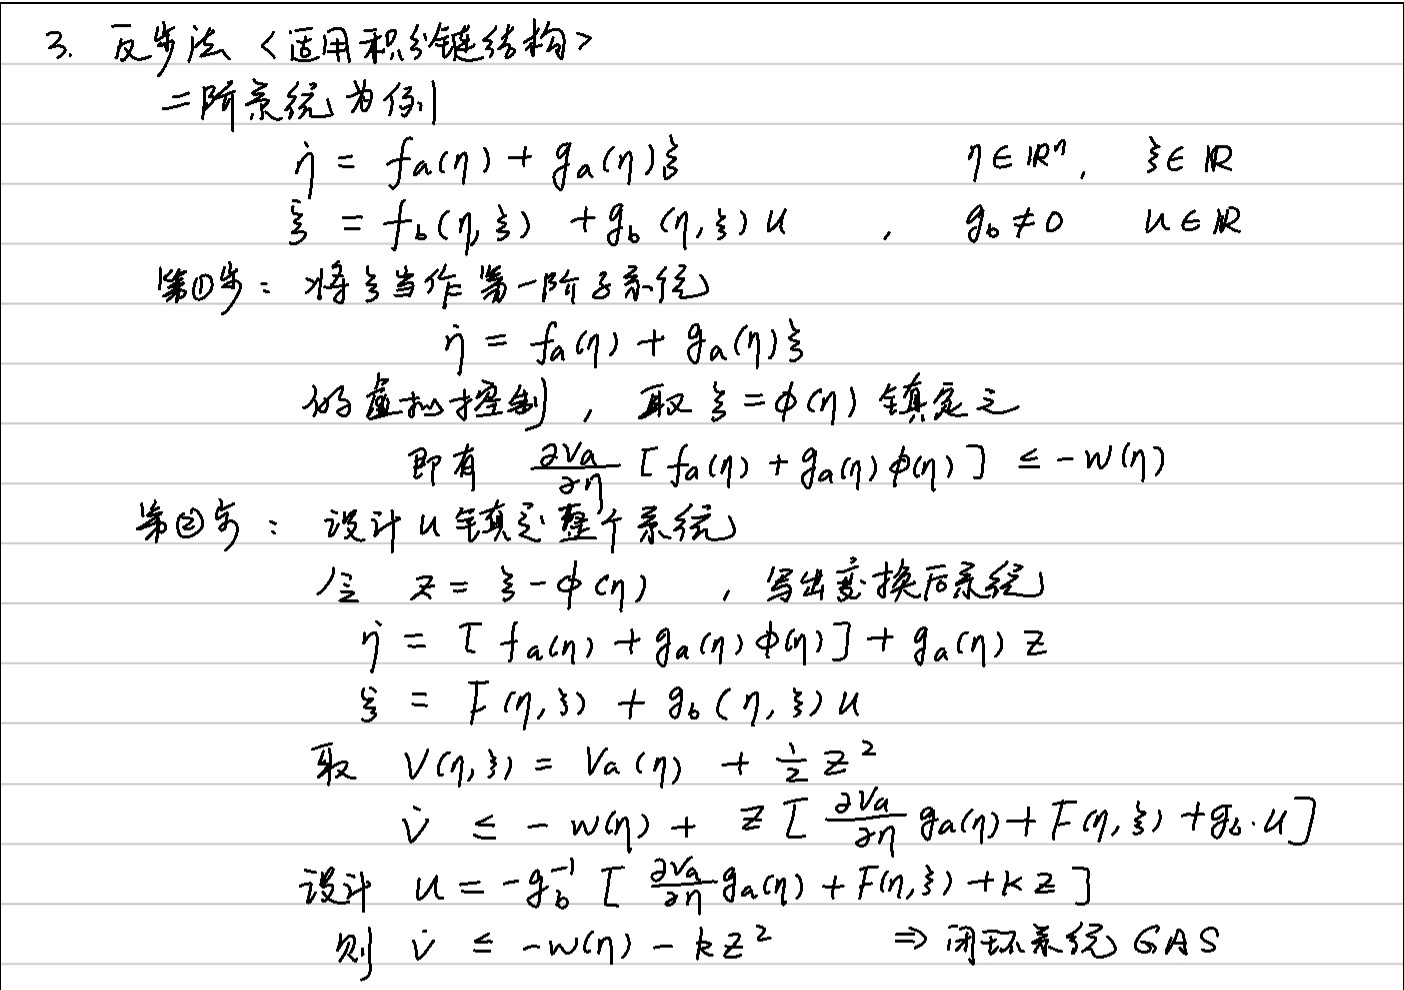 3. 反步法 <适用积分链结构>
二阶系统为例
η̇ = fa(η) + ga(η)ξ η∈ℝⁿ, ξ∈ℝ
ξ̇ = fb(η,ξ) + gb(η,ξ)u , gb≠0 u∈ℝ
第①步: 将ξ当作第一阶子系统
η̇ = fa(η) + ga(η)ξ
的虚拟控制, 取 ξ=φ(η) 镇定之
即有 ∂Va/∂η [fa(η) + ga(η)φ(η)] ≤ -W(η)
第②步: 设计u镇定整个系统
令 z = ξ-φ(η) , 写出变换后系统
η̇ = [fa(η) + ga(η)φ(η)] + ga(η)z
ξ̇ = F(η,ξ) + gb(η,ξ)u
取 V(η,ξ) = Va(η) + 1/2 z²
V̇ ≤ -W(η) + z[∂Va/∂η ga(η) + F(η,ξ) + gb·u]
设计 u = -gb⁻¹ [∂Va/∂η ga(η) + F(η,ξ) + kz]
则 V̇ ≤ -W(η) - kz² ⇒ 闭环系统 GAS